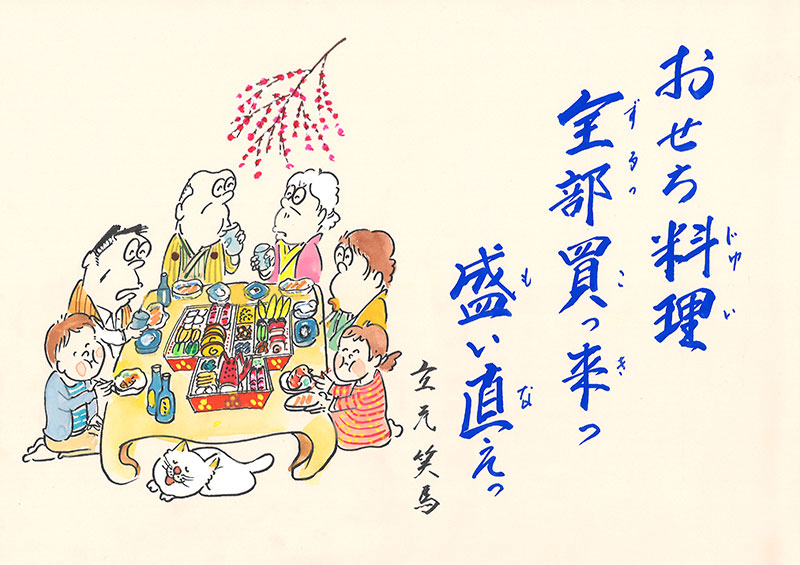 おせち料理
じゅい
全部買っ来っ
ずるっ こ き
盛い直えっ
も な
立元笑馬